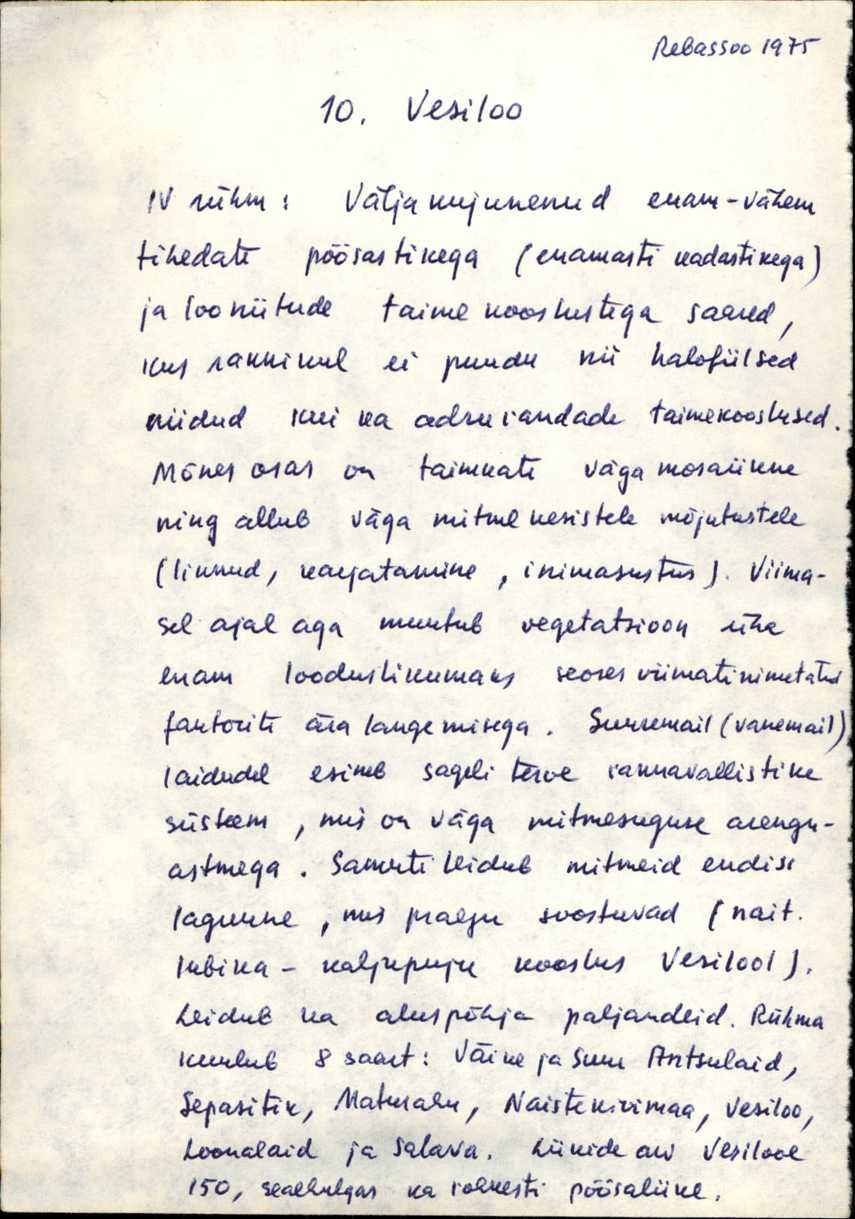 Rebassoo 1975
10. Vesiloo
IV rühm: Väljakujunenud enam-vähem
tihedate põõsastikega (enamasti kadastikega)
ja looniitude taimekooslustega saared,
kus rannikul ei puudu nii halofiilsed
niidud kui ka adruvandade taimekooslused.
Mõnes osas on taimkate väga mosaiikne
ning allub väga mitmekesistele mõjutustele
(linnud, karjatamine, inimasustus). Viima-
sel ajal aga muutub vegetatsioon üha
enam looduslikumaks seoses viimatinimetatud
faktorite äralangemisega. Suuremail (vanemail)
laidudel esineb sageli terve rannavallistike
süsteem, mis on väga mitmesuguse arengu-
astmega. Samuti leidub mitmeid endisi
laguune, mis praegu soostuvad (näit.
lubika-kaljupuju kooslus Vesilool).
Leidub ka aluspõhja paljandeid. Rühma
kuulub 8 saart: Väike ja Suur Antsulaid,
Sepasitik, Maturahu, Naistekivimaa, Vesiloo,
Loonalaid ja Salava. Liikide arv Vesilool
150, sealhulgas ka rohkesti põõsaliike.